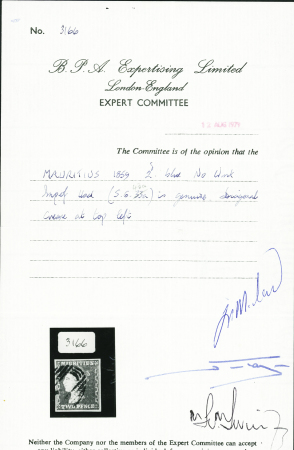 No. 3166
B. P. A. Expertising Limited
London-England
EXPERT COMMITTEE
The Committee is of the opinion that the
MAURITIUS 1859 2d. blue No Wmk
Imperf Used (S.G. in genuine diagonal
Crease at top left
3166
MAURITIUS
TWO PENCE
Neither the Company nor the members of the Expert Committee can accept